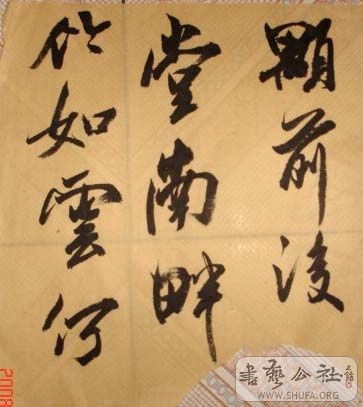 顯前後
堂南畔
竹如雲何
2008
書藝公社
WWW.SHUFA.ORG